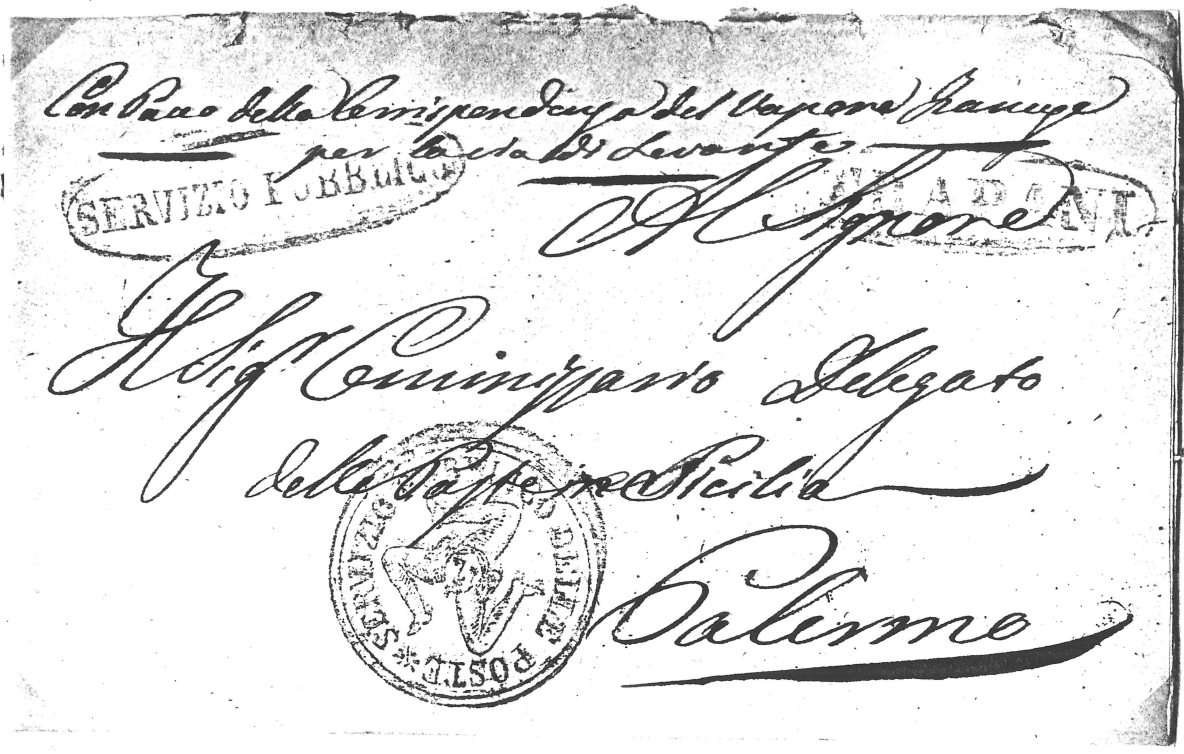 Con Pacco della Corrispondenza del Vapore Francese
per la via di Levante
SERVIZIO PUBBLICO
TRAPANI
Al Signore
Il Sigr Commissario Delegato
delle Poste in Sicilia
SERVIZIO DELLE POSTE
Palermo